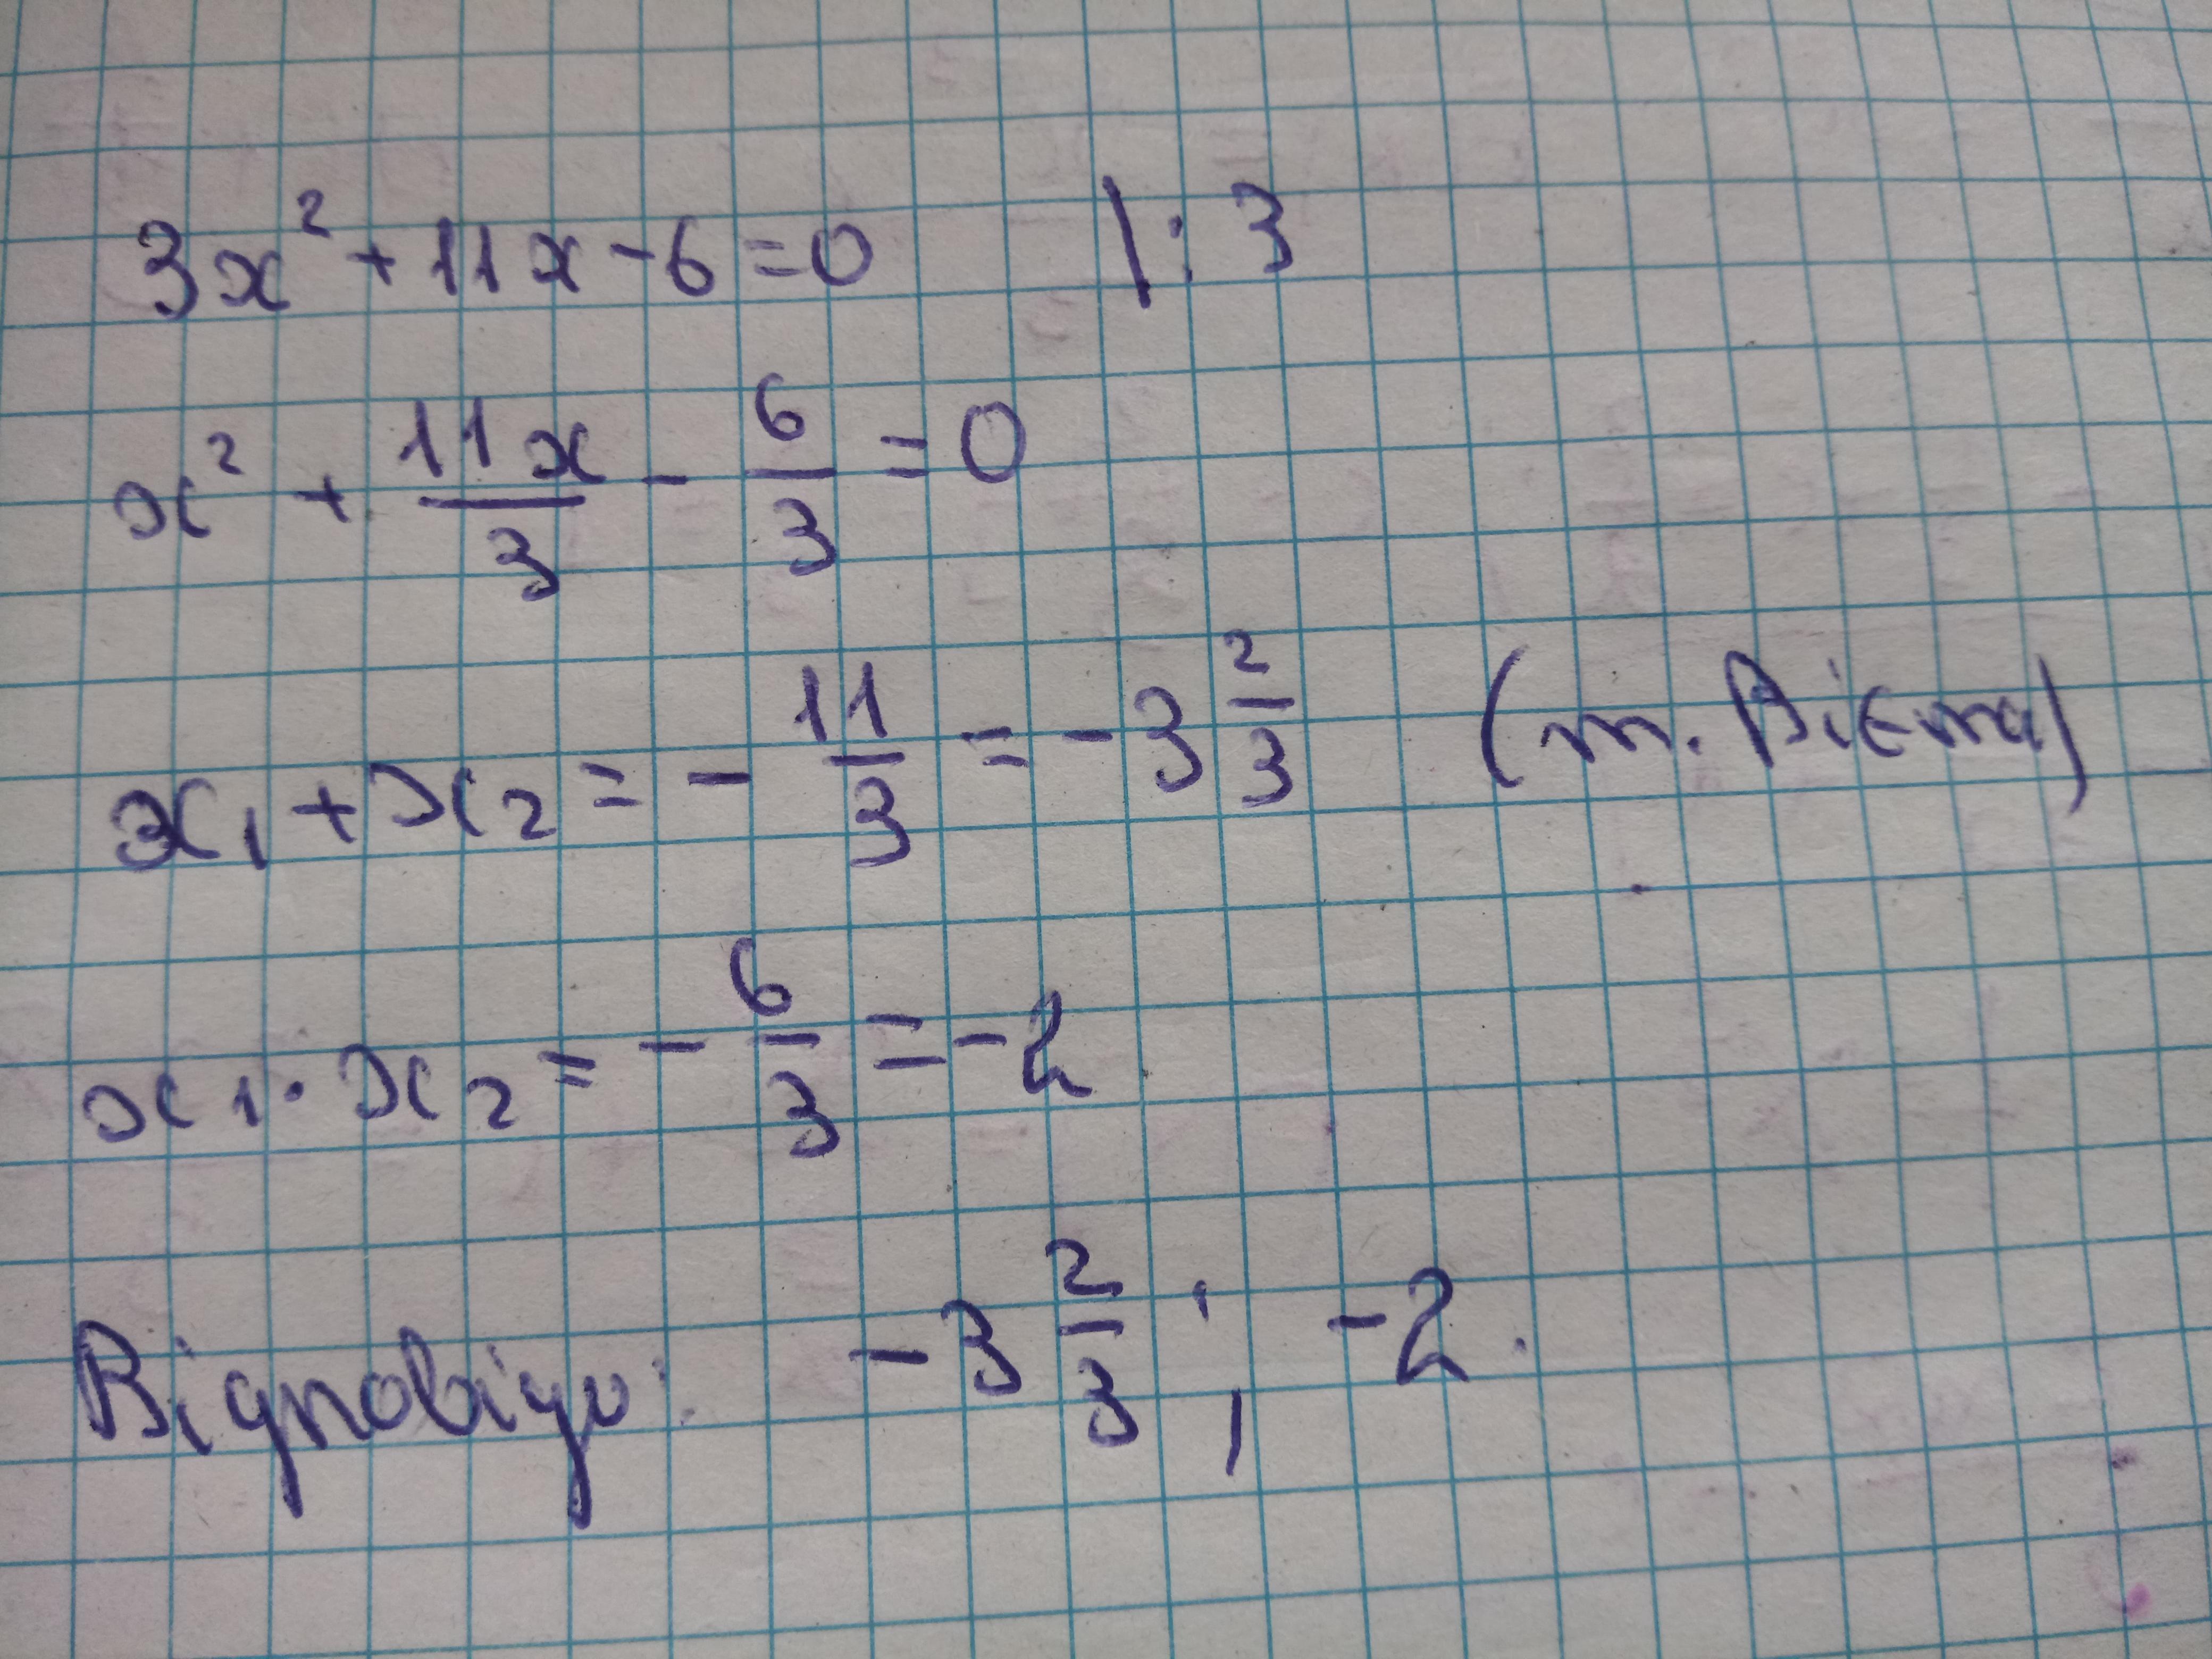 3x² + 11x - 6 = 0 |: 3
x² + 11x/3 - 6/3 = 0
x₁ + x₂ = - 11/3 = - 3 2/3 (т. Вієта)
x₁ · x₂ = - 6/3 = - 2
Відповідь: - 3 2/3 ; - 2.